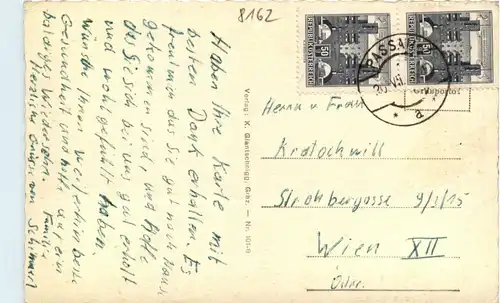 8162
Haben Ihre Karte mit
besten Dank erhalten. Es
freut mich das Sie gut nach Haus
gekommen sind, und hoffe
das Sie sich bei uns gut erholt
und wohl gefühlt haben.
wünsche Ihnen weiterhin beste
Gesundheit und hoffe auf ein
baldiges Wiedersehn.
Herzliche Grüsse von
Familie
Verlag: K. Glantschnigg, Grbz. — Nr. 101-0
50
REPUBLIK ÖSTERREICH
50
REPUBLIK ÖSTERREICH
PASSA
VII
a
Herrn u Frau
Kratochwill
Strohbergasse 9/3/15
Wien XII
Öster.